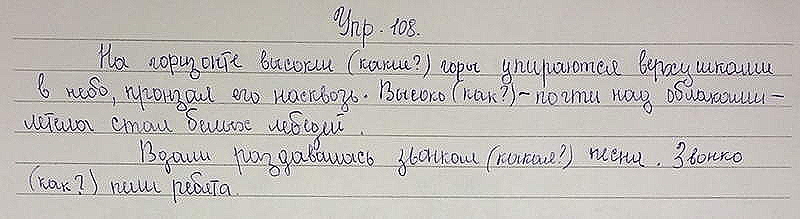 Упр. 108.
На горизонте высокии (какие?) горы упираются верхушками
в небо, пронзая его насквозь. Высоко (как?) - почти над облаками -
летела стая белых лебедей.
Вдали раздавалась звонкая (какая?) песня. Звонко
(как?) пели ребята.